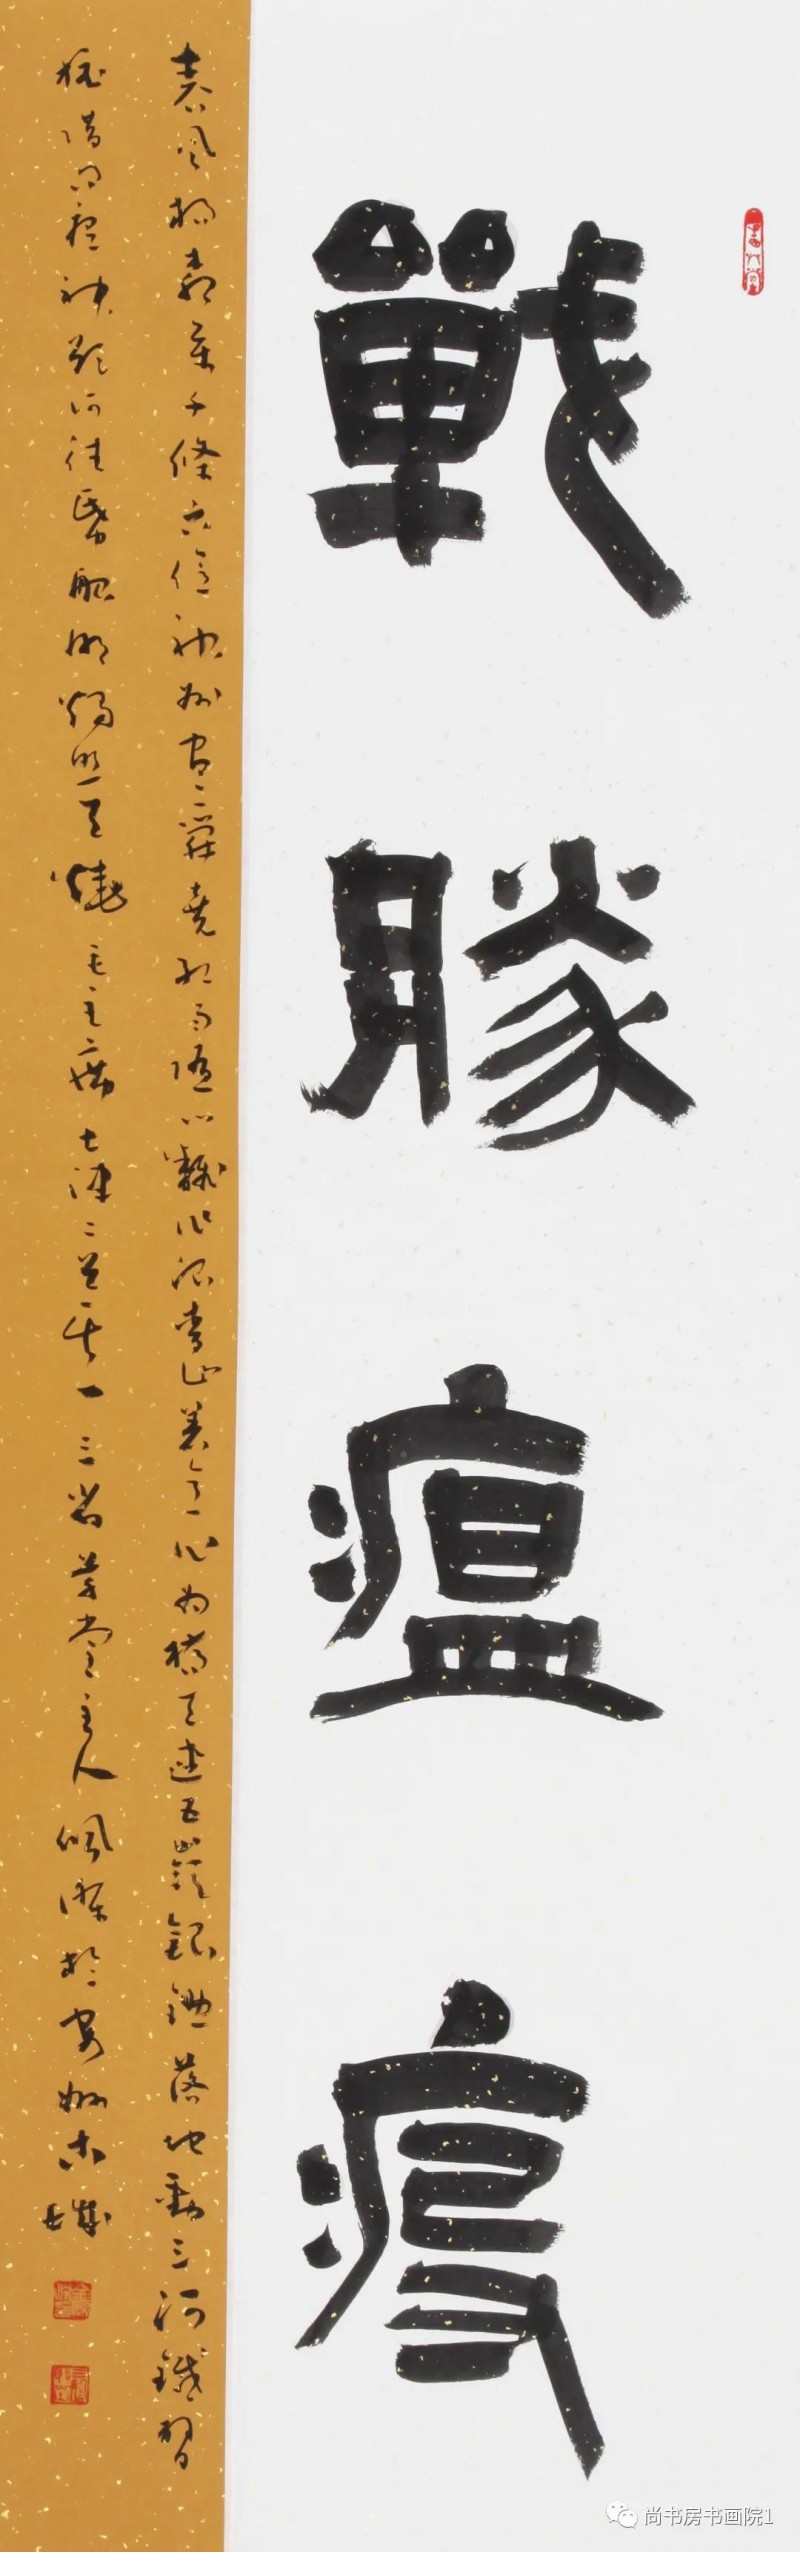 戰勝瘟疫
春風楊柳萬千條六億神州盡舜堯紅雨隨心翻作浪青山著意化為橋天連五嶺銀鋤落地動三河鐵臂
搖借問瘟神欲何往紙船明燭照天燒毛主席七律二首其一三
主人佩
於
尚书房书画院1